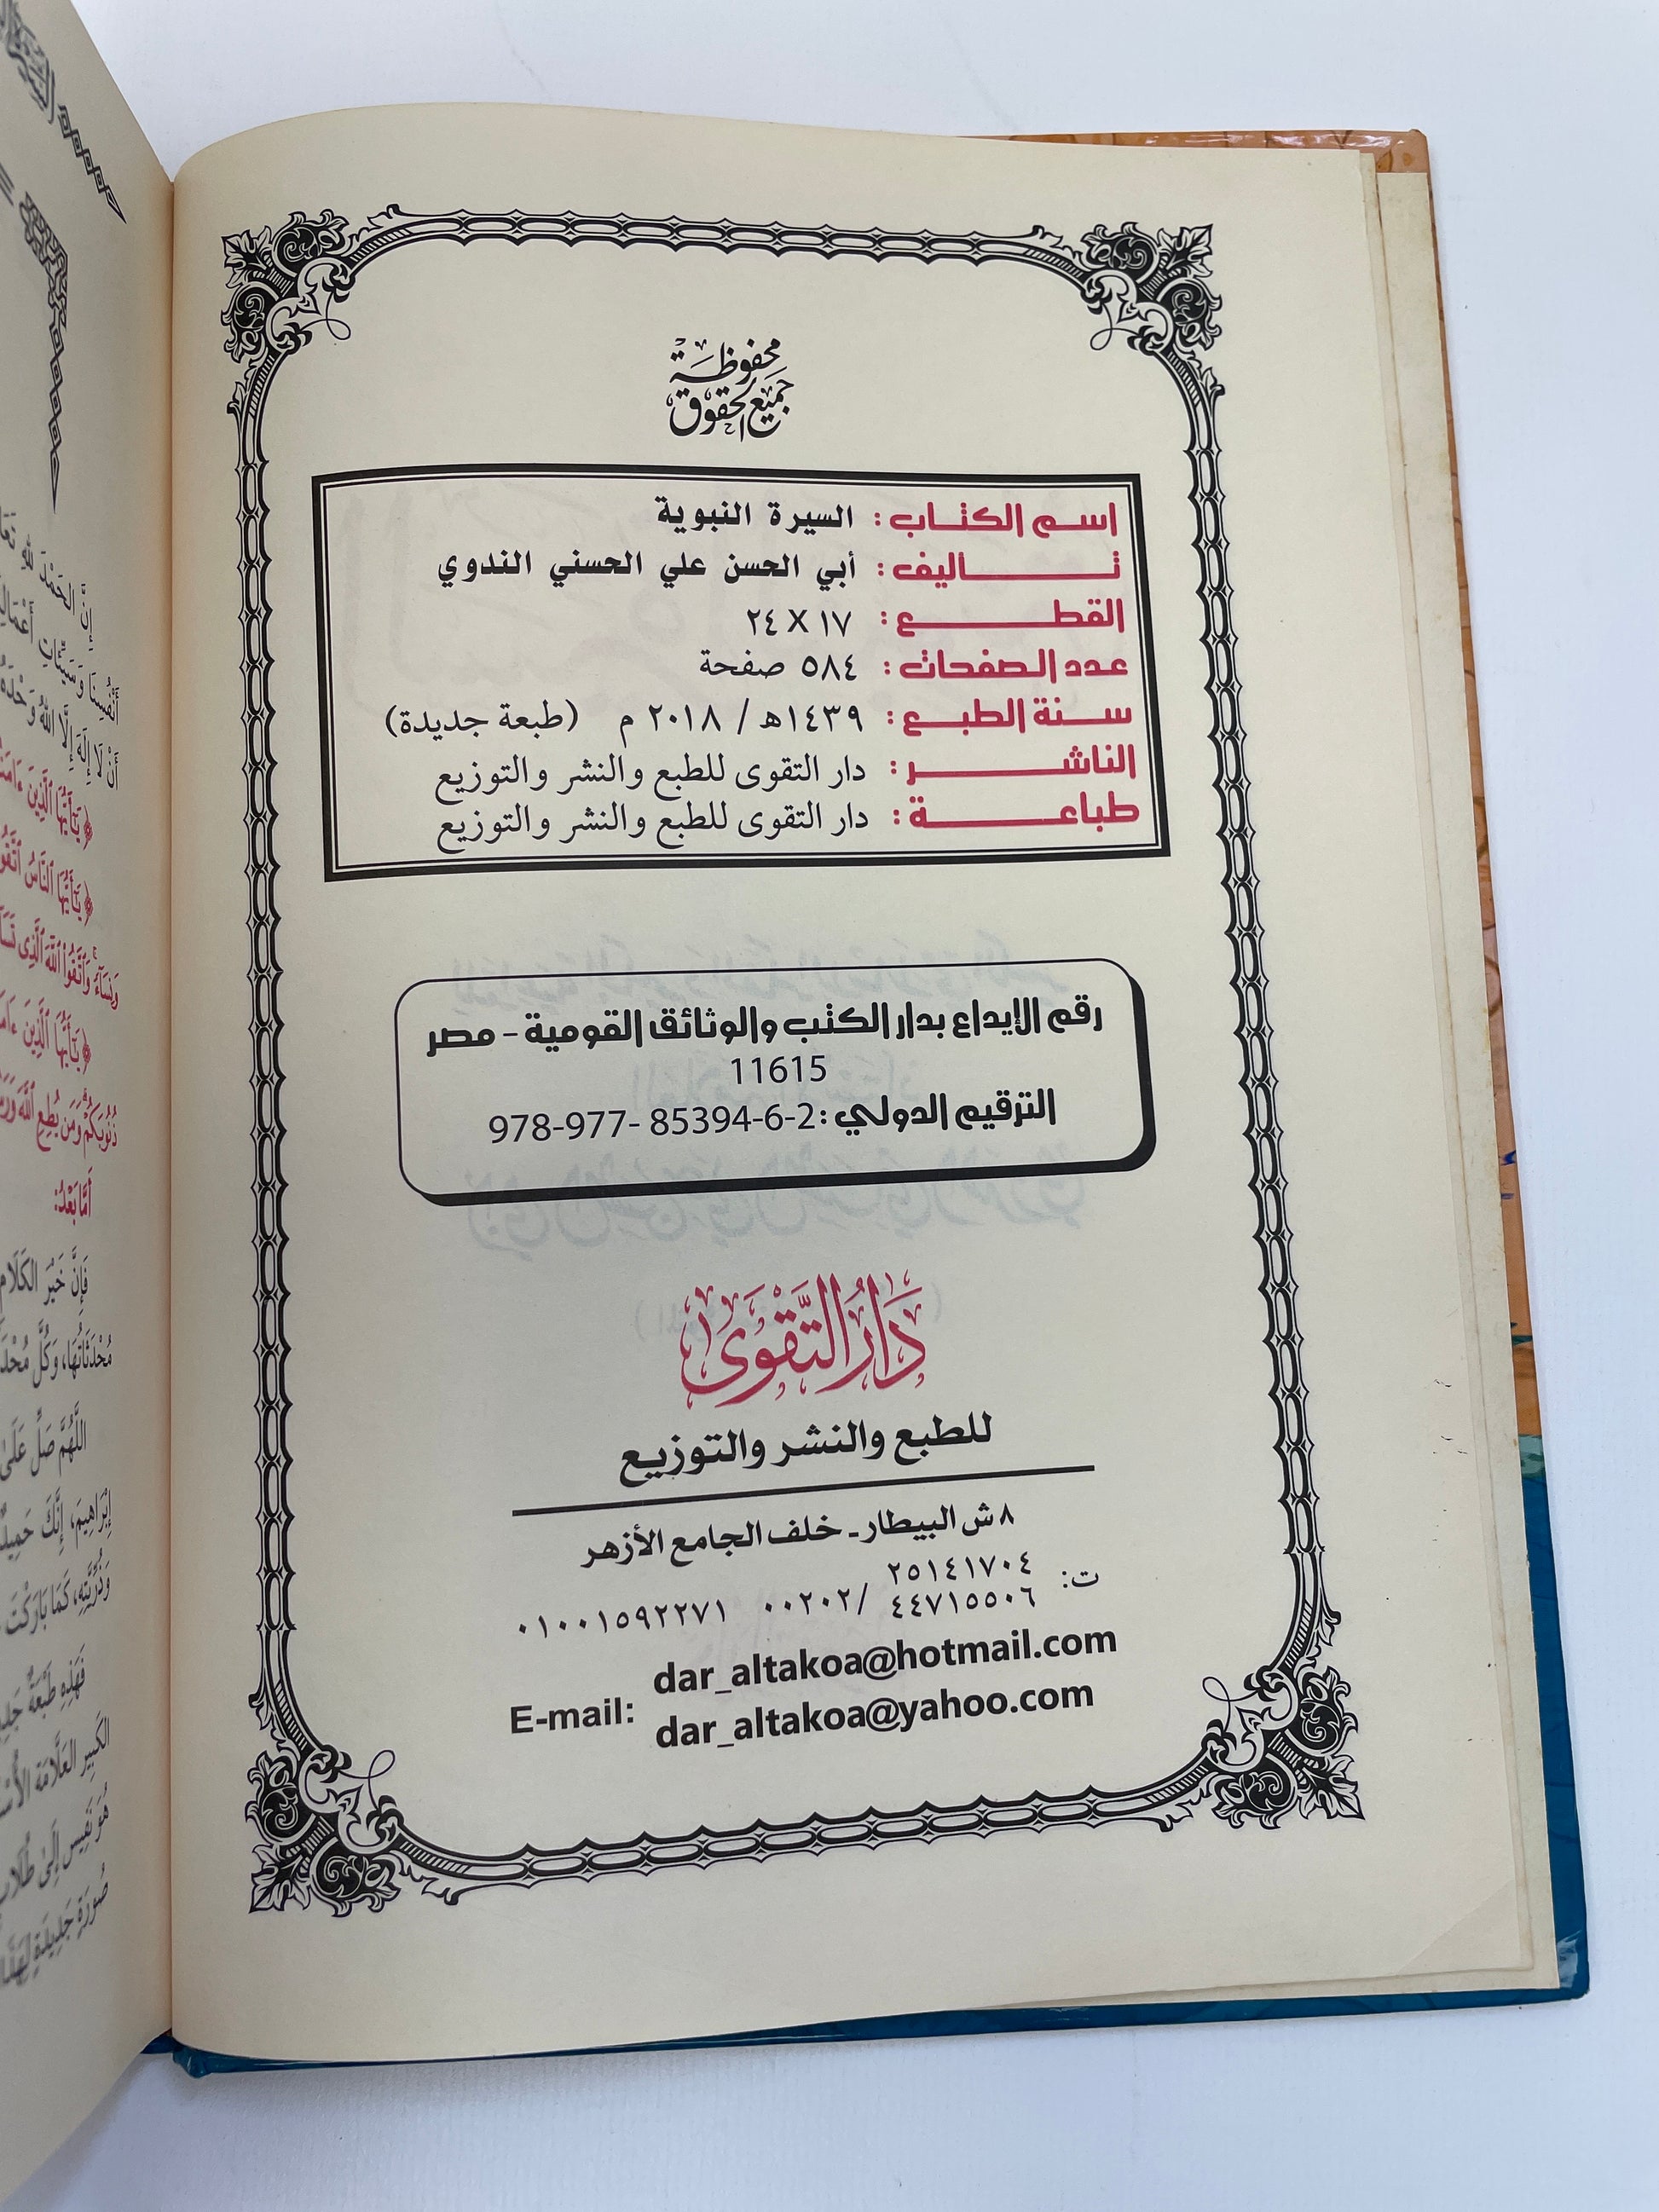 جميع الحقوق محفوظة
اسم الكتاب : السيرة النبوية
تأليف : أبي الحسن علي الحسني الندوي
القطع : ١٧ X ٢٤
عدد الصفحات : ٥٨٤ صفحة
سنة الطبع : ١٤٣٩هـ / ٢٠١٨ م (طبعة جديدة)
الناشر : دار التقوى للطبع والنشر والتوزيع
طباعة : دار التقوى للطبع والنشر والتوزيع
رقم الإيداع بدار الكتب والوثائق القومية - مصر
11615
الترقيم الدولي : 978-977- 85394-6-2
دَارُ التَّقْوَى
للطبع والنشر والتوزيع
٨ ش البيطار ـ خلف الجامع الأزهر
ت: ٢٥١٤١٧٠٤
٤٤٧١٥٥٠٦ /٠٠٢٠٢ ٠١٠٠١٥٩٢٢٧١
E-mail: dar_altakoa@hotmail.com
dar_altakoa@yahoo.com
إِنَّ الحَمْدَ لِلَّهِ
أَنْفُسِنَا وَسَيِّئَاتِ
أَنْ لَا إِلَهَ إِلَّا اللهُ وَحْدَهُ
﴿يَٰٓأَيُّهَا ٱلَّذِينَ
﴿يَٰٓأَيُّهَا ٱلنَّاسُ
وَنِسَآءً وَٱتَّقُوا۟ ٱللَّهَ ٱلَّذِى
﴿يَٰٓأَيُّهَا ٱلَّذِينَ
ذُنُوبَكُمْ وَمَن يُطِعِ ٱللَّهَ
أَمَّا بَعْدُ:
فَإِنَّ خَيْرَ الكَلَامِ
مُحْدَثَاتُهَا، وَكُلَّ
اللَّهُمَّ صَلِّ عَلَى
إِبْرَاهِيمَ، إِنَّكَ حَمِيدٌ
وَذُرِّيَّتِهِ، كَمَا بَارَكْتَ
فَهَذِهِ طَبْعَةٌ
الكَبِيرِ العَلَّامَةِ
هُوَ نَفِيس إِلَى طُلَّابِ
صُورَةٍ جَدِيدَةٍ